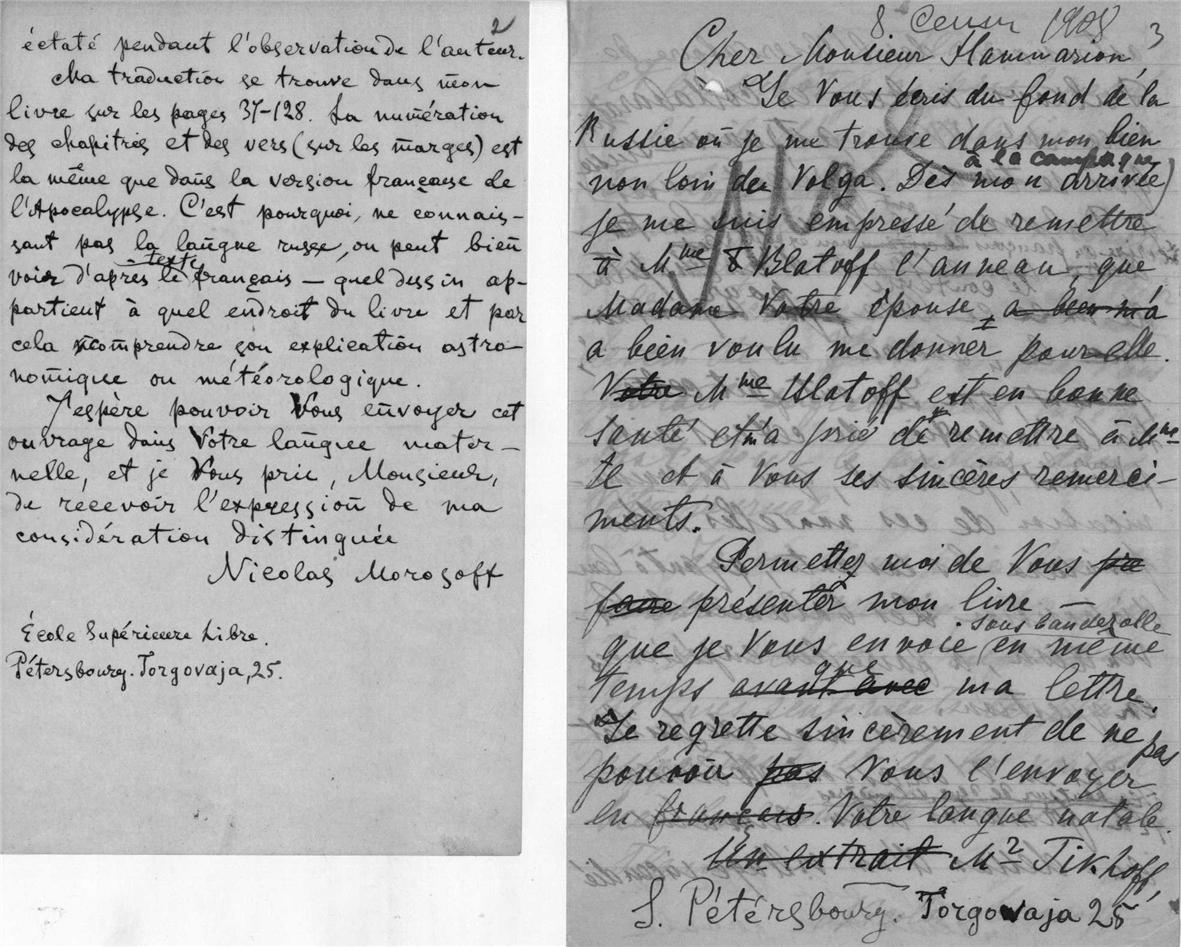 2
éctaté pendant l'observation de l'auteur.
Ma traduction se trouve dans mon
livre sur les pages 37-128. La numération
des chapitres et des vers (sur les marges) est
la même que dans la version française de
l'Apocalypse. C'est pourquoi, ne connais-
sant pas la langue russe, on peut bien
voir d'après le texte français — quel dessin ap-
partient à quel endroit du livre et par
cela comprendre son explication astro-
nomique ou météorologique.
J'espère pouvoir Vous envoyer cet
ouvrage dans Votre langue mater-
nelle, et je Vous prie, Monsieur,
de recevoir l'expression de ma
considération distinguée
Nicolas Morosoff
École Supérieure Libre.
Pétersbourg. Torgovaja, 25.
8 1908
3
Cher Monsieur Flammarion
Je Vous écris du fond de la
Russie où je me trouve dans mon bien
à la campagne
non loin du Volga. Dès mon arrivée)
je me suis empressé de remettre
à Mme Ulatoff l'anneau, que
Madame Votre épouse a bien m'a
a bien voulu me donner pour elle.
Votre Mme Ulatoff est en bonne
santé et m'a prié de remettre à Mme
te et à Vous ses sincères remerci-
ments.
Permettez moi de Vous
faire présenter mon livre
sous banderolle
que je Vous envoie en même
que
temps avant avec ma lettre.
Je regrette sincèrement de ne pas
pouvoir pas Vous l'envoyer
en français. Votre langue natale.
Un extrait M2 Tikhoff,
S. Pétérsbourg. Torgowaja 25